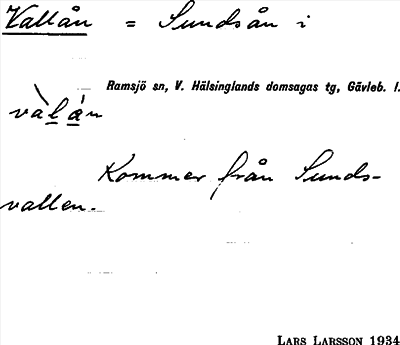 Vallån = Sundsån i
Ramsjö sn, V. Hälsinglands domsagas tg, Gävleb. l.
vàlán
Kommer från Sunds-
vallen.
LARS LARSSON 1934